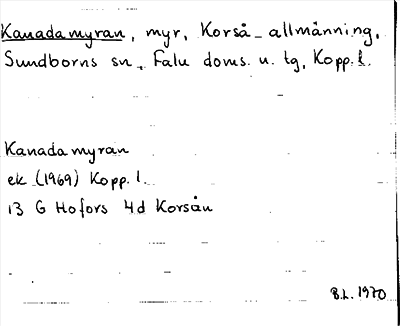 Kanadamyran, myr, Korså-allmänning,
Sundborns sn, Falu doms. u. tg, Kopp. l.
Kanadamyran
ek (1969) Kopp. l.
13 G Hofors 4d Korsån
B.L. 1970